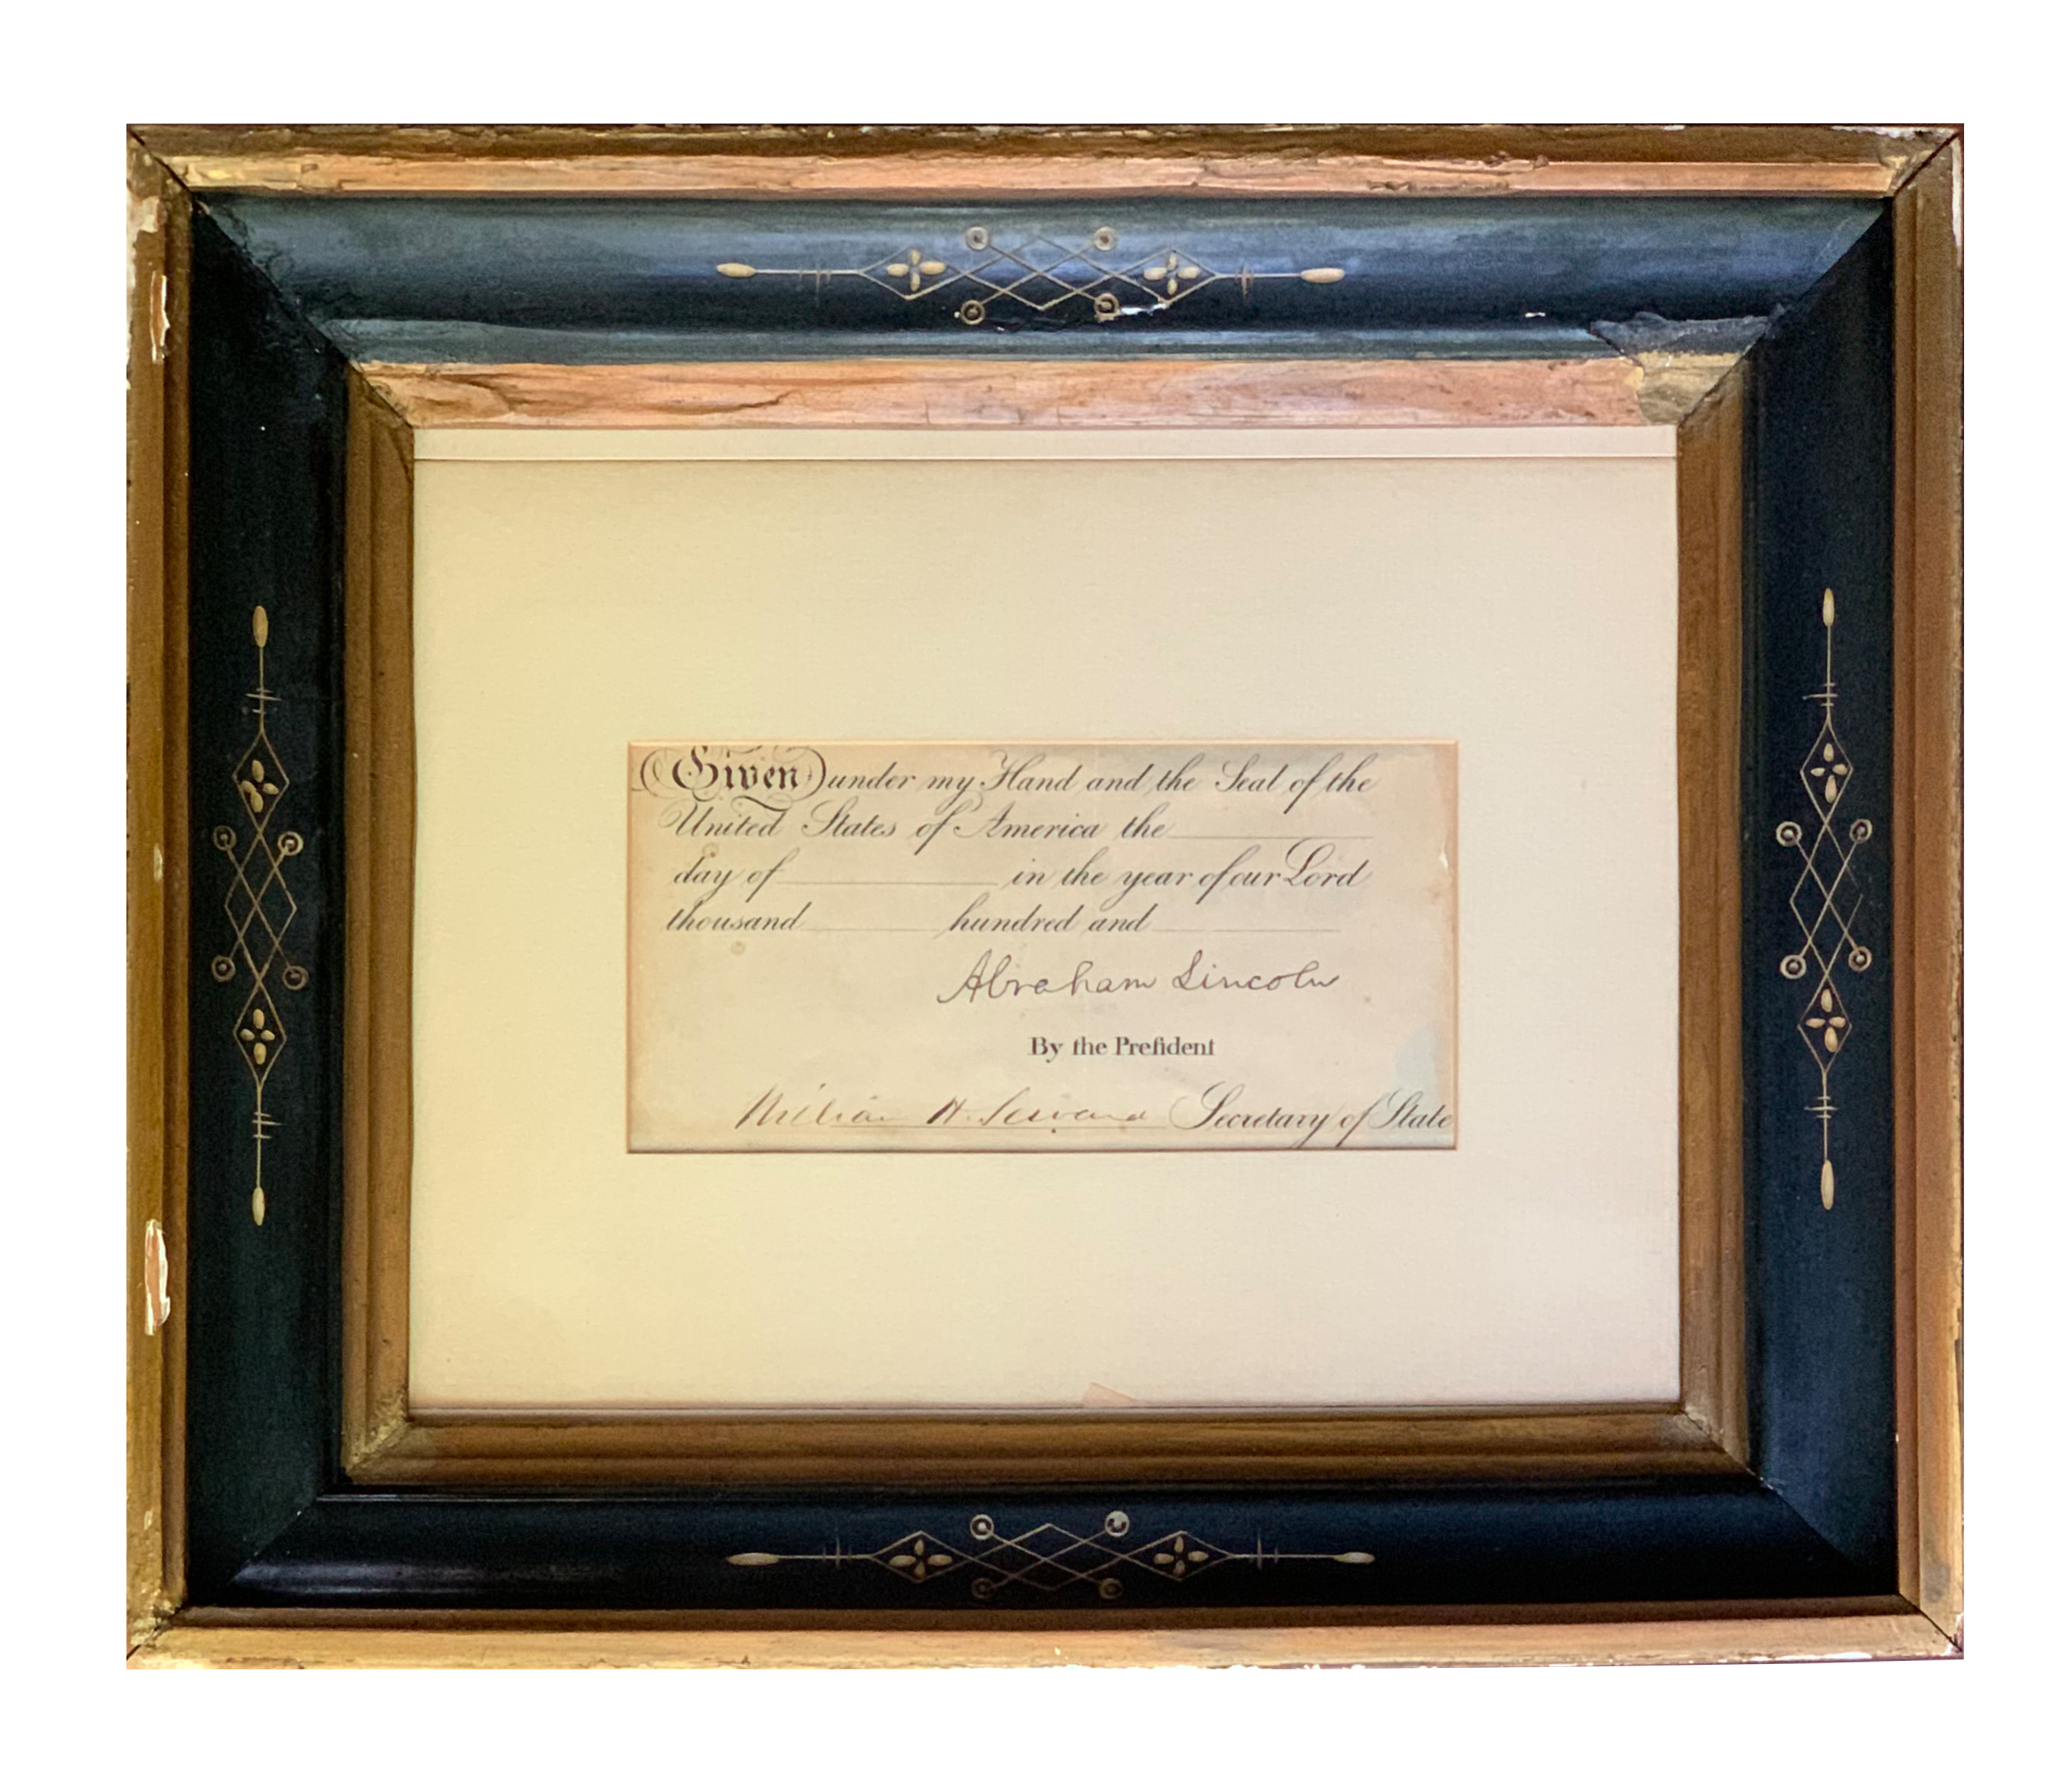 Given under my Hand and the Seal of the
United States of America the
day of in the year of our Lord
thousand hundred and
Abraham Lincoln
By the Preſident
William H. Seward Secretary of State